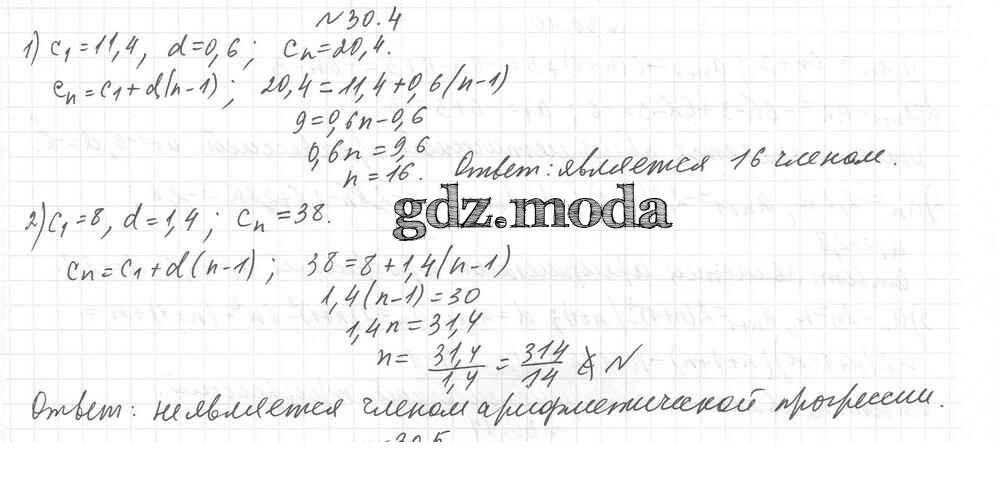 №30.4
1) c₁=11,4, d=0,6; cₙ=20,4.
cₙ=c₁+d(n-1); 20,4=11,4+0,6(n-1)
9=0,6n-0,6
0,6n=9,6
n=16. Ответ: является 16 членом.
gdz.moda
2) c₁=8, d=1,4; cₙ=38.
cₙ=c₁+d(n-1); 38=8+1,4(n-1)
1,4(n-1)=30
1,4n=31,4
n=31,4/1,4=314/14∉N
Ответ: не является членом арифметической прогрессии.